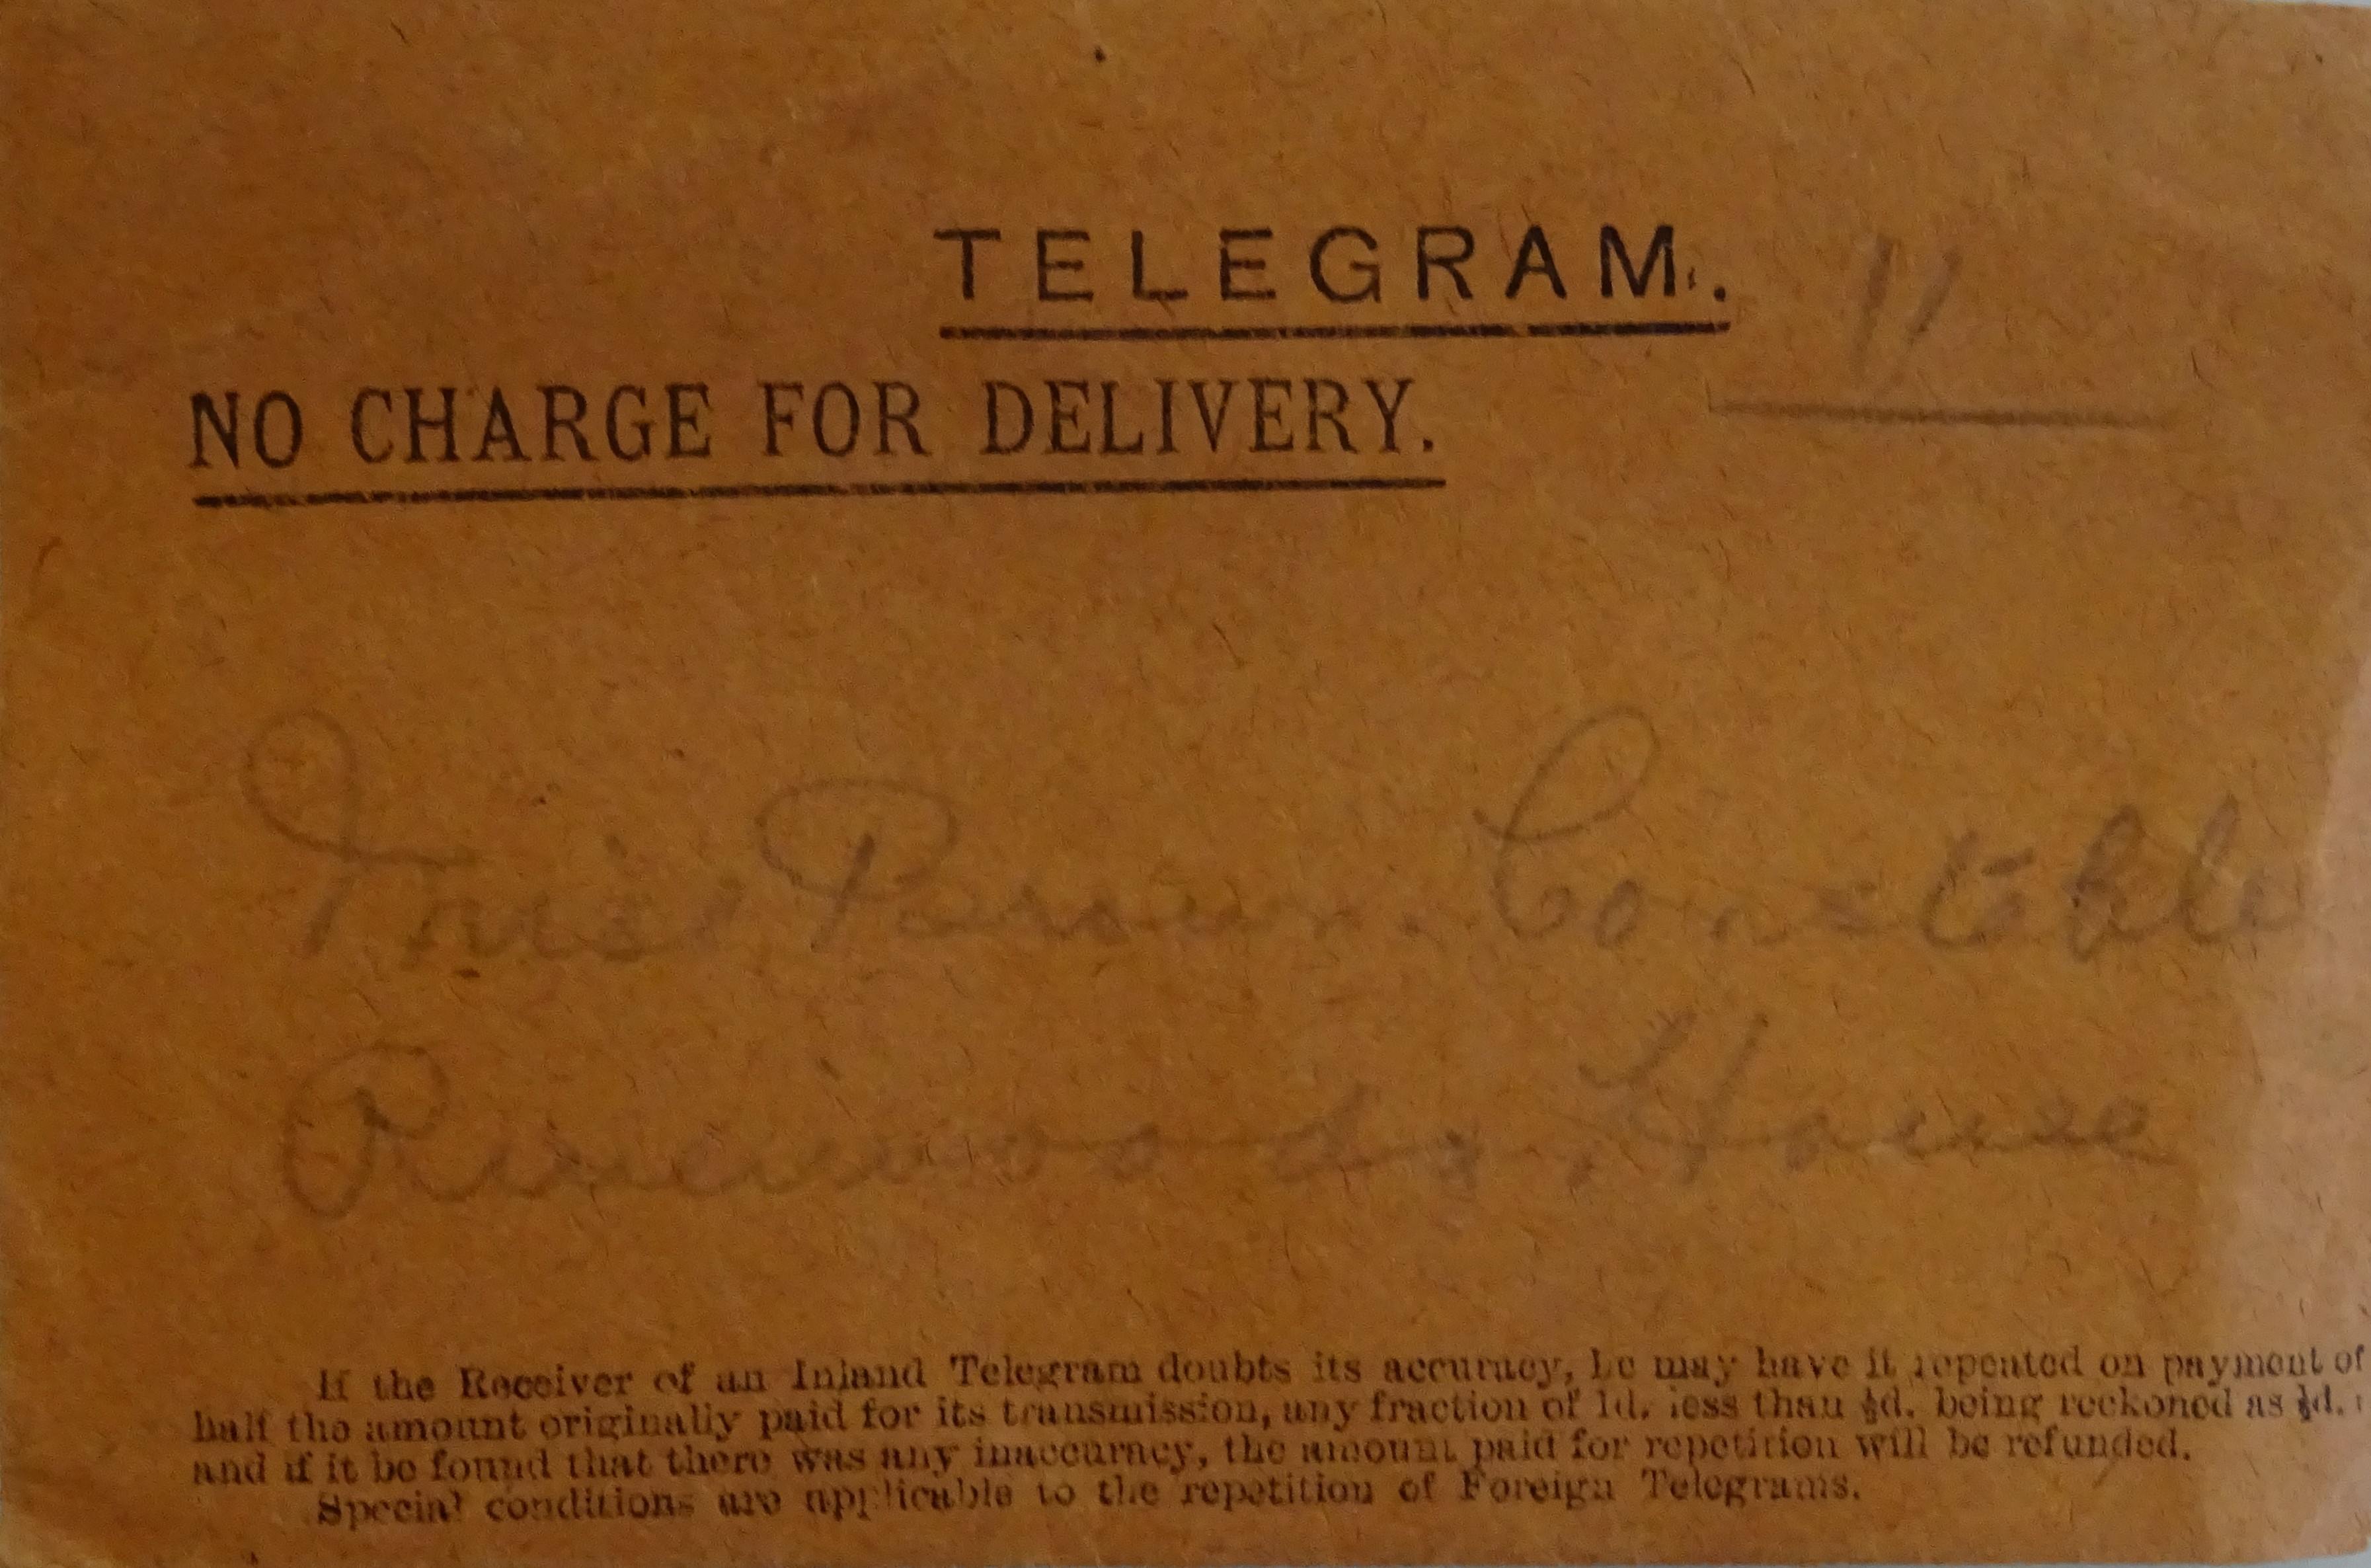 TELEGRAM.
11
NO CHARGE FOR DELIVERY.
Miss Constable
House
If the Receiver of an Inland Telegram doubts its accuracy, he may have it repeated on payment of
half the amount originally paid for its transmission, any fraction of 1d. less than ½d. being reckoned as ½d.;
and if it be found that there was any inaccuracy, the amount paid for repetition will be refunded.
Special conditions are applicable to the repetition of Foreign Telegrams.